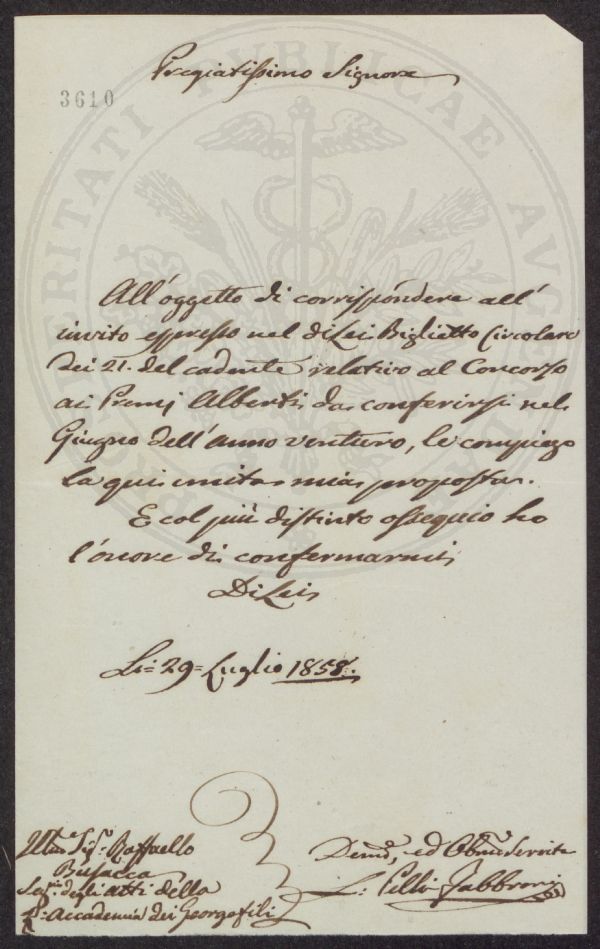 Pregiatissimo Signore
3610
PROSPERITATI PUBLICAE AUGENDAE
All'oggetto di corrispondere all'
invito espresso nel di Lei Biglietto Circolare
dei 21. del cadente relativo al Concorso
ai Premj Alberti da conferirsi nel
Giugno dell'anno venturo, le compiego
la qui unita mia proposta.
E col più distinto ossequio ho
l'onore di confermarmi
Di Lei
Li = 29 = Luglio 1858.
Illmo Sigr. Raffaello
Busacca
Segrio degli atti della
R: Accademia dei Georgofili
Devmo, ed Obbmo Servite
L: Pelli Fabbroni